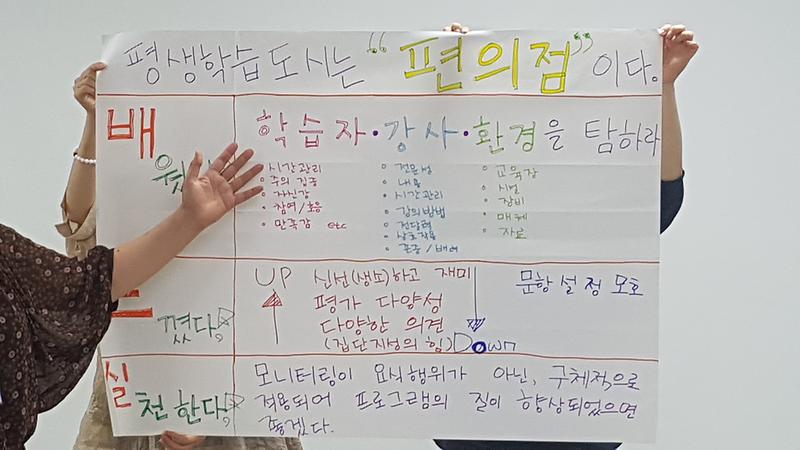 평생학습도시는 “편의점” 이다.
배
학습자·강사·환경을 탐하라
시간관리
주의 집중
자신감
참여/호응
만족감 etc
전문성
내용
시간관리
강의방법
전달력
상호작용
존중/배려
교육장
시설
장비
매체
자료
꼈다
UP 신선(생소)하고 재미
평가 다양성
다양한 의견
(집단지성의 힘) Down
문항 설정 모호
실
천한다
모니터링이 요식행위가 아닌, 구체적으로
적용되어 프로그램의 질이 향상되었으면
좋겠다.